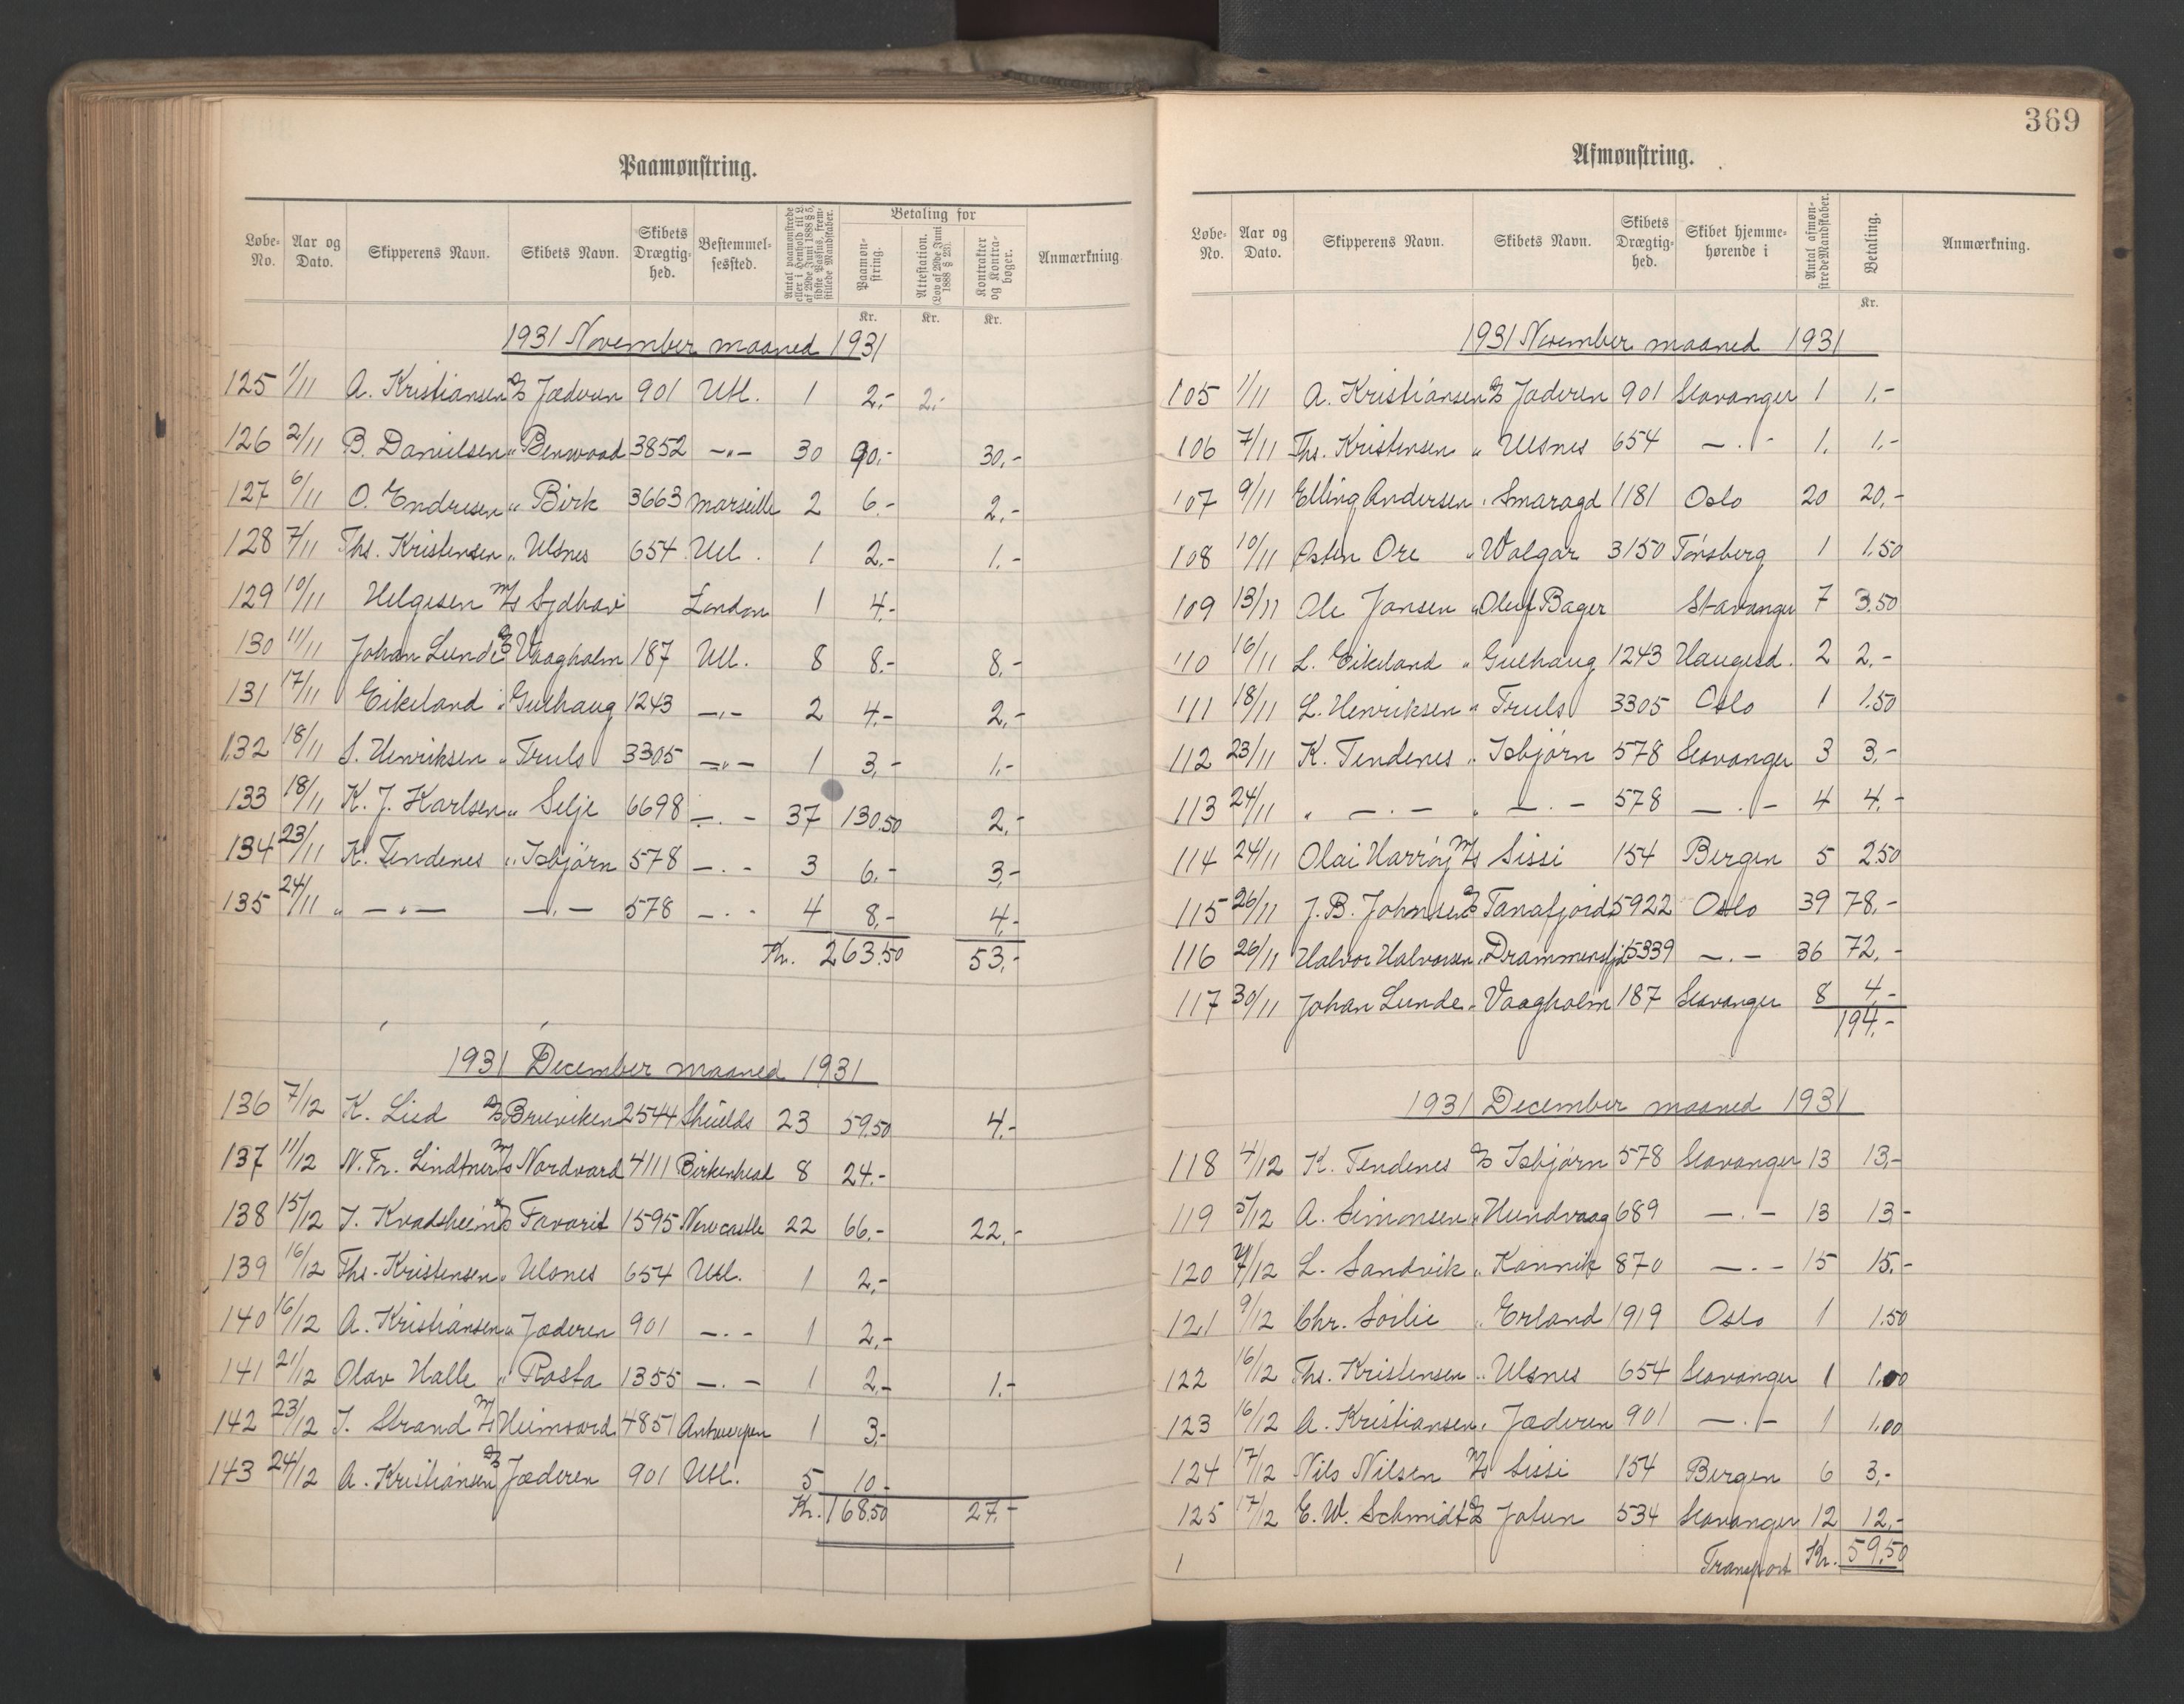 Paamønstring.
Løbe-No. Aar og Dato. Skipperens Navn. Skibets Navn. Skibets Drægtig-hed. Bestemmel-sessted. Antal paamønstrede eller i Henhold til L. af 29de Juni 1888 § 5, sidste Passus, frem-stillede Mandskaber. Betaling for Paamøn-string. Attestation. (Lov af 29de Juni 1888 § 23). Kontrakter og Kontra-bøger. Anmærkning.
Kr. Kr. Kr.
1931 November maaned 1931
125 1/11 A. Kristiansen D/S Jæderen 901 Utl. 1 2,- 2,-
126 2/11 B. Danielsen " Benwood 3852 -"- 30 90,- 30,-
127 6/11 O. Endresen " Birk 3663 Marseille 2 6,- 2,-
128 7/11 Ths. Kristensen " Ulsnes 654 Utl. 1 2,- 1,-
129 10/11 Helgesen M/S Sydhav London 1 4,-
130 11/11 Johan Lunde D/S Vaagholm 187 Utl. 8 8,- 8,-
131 17/11 Eikeland " Gulhaug 1243 -"- 2 4,- 2,-
132 18/11 S. Henriksen " Truls 3305 -"- 1 3,- 1,-
133 18/11 K. J. Karlsen " Selje 6698 -"- 37 130.50 2,-
134 23/11 K. Tendenes " Isbjørn 578 -"- 3 6,- 3,-
135 24/11 " -"- -"- 578 -"- 4 8,- 4,-
Kr. 263.50 53,-
1931 December maaned 1931
136 7/12 K. Lied D/S Brueviken 2544 Shields 23 59.50 4,-
137 11/12 N. Fr. Lindtner M/S Nordvard 4111 Birkenhead 8 24,-
138 15/12 T. Kvadsheim D/S Favorit 1595 Newcastle 22 66,- 22,-
139 16/12 Ths. Kristensen " Ulsnes 654 Utl. 1 2,-
140 16/12 A. Kristiansen " Jæderen 901 -"- 1 2,-
141 21/12 Olav Halle " Rosta 1355 -"- 1 2,- 1,-
142 23/12 T. Strand M/S Heimvard 4851 Antwerpen 1 3,-
143 24/12 A. Kristiansen D/S Jæderen 901 Utl. 5 10,-
Kr. 168.50 27,-
369
Afmønstring.
Løbe-No. Aar og Dato. Skipperens Navn. Skibets Navn. Skibets Drægtig-hed. Skibet hjemme-hørende i Antal afmøn-strede Mandskaber. Betaling. Anmærkning.
Kr.
1931 November maaned 1931
105 1/11 A. Kristiansen D/S Jæderen 901 Stavanger 1 1,-
106 7/11 Ths. Kristensen " Ulsnes 654 -"- 1. 1,-
107 9/11 Elling Andersen " Smaragd 1181 Oslo 20 20,-
108 10/11 Østen Ore " Walgar 3150 Tønsberg 1 1.50
109 13/11 Ole Jansen " Oluf Bager Stavanger 7 3.50
110 16/11 L. Eikeland " Gulhaug 1243 Haugesd. 2 2,-
111 18/11 L. Henriksen " Truls 3305 Oslo 1 1.50
112 23/11 K. Tendenes " Isbjørn 578 Stavanger 3 3,-
113 24/11 " -"- " -"- 578 -"- 4 4,-
114 24/11 Olai Harrøy M/S Sissi 154 Bergen 5 2.50
115 26/11 J. B. Johnsen D/S Tanafjord 5922 Oslo 39 78,-
116 26/11 Halvor Halvorsen " Drammensfjd 5339 -"- 36 72,-
117 30/11 Johan Lunde " Vaagholm 187 Stavanger 8 4,-
194,-
1931 December maaned 1931
118 4/12 K. Tendenes D/S Isbjørn 578 Stavanger 13 13,-
119 5/12 A. Simonsen " Hundvaag 689 -"- 13 13-
120 7/12 L. Sandvik " Kannik 870 -"- 15 15,-
121 9/12 Chr. Soilie " Erland 1919 Oslo 1 1.50
122 16/12 Ths. Kristensen " Ulsnes 654 Stavanger 1 1.00
123 16/12 A. Kristiansen " Jæderen 901 -"- 1 1.00
124 17/12 Nils Nilsen M/S Sissi 154 Bergen 6 3,-
125 17/12 E. W. Schmidt D/S Jotun 534 Stavanger 12 12,-
Transport Kr. 59.50